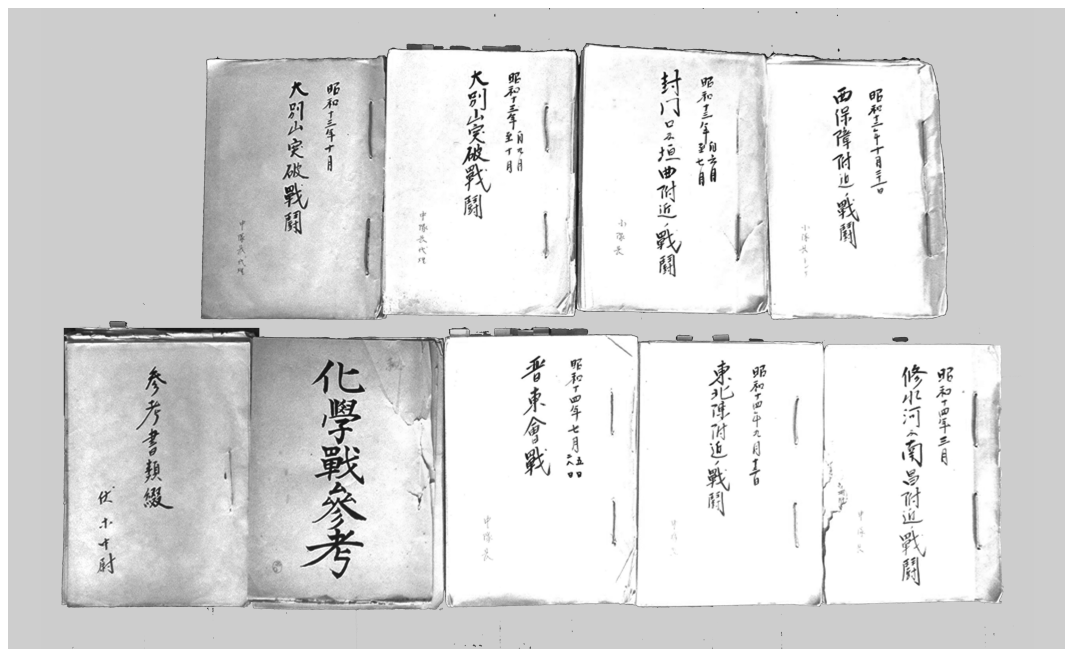 昭和十三年十月
大別山突破戰鬪
中隊長代理
昭和十三年
自九月
至十月
大別山突破戰鬪
中隊長代理
昭和十三年
自六月
至七月
封门口及垣曲附近ノ戰鬪
小隊長
西保障附近ノ戰鬪
小隊長
参考書類綴
化學戰參考
昭和十四年七月
晋東會戰
中隊長
昭和十四年九月
東北陳附近ノ戰鬪
中隊長
昭和十四年三月
修水河及南昌附近ノ戰鬪
中隊長